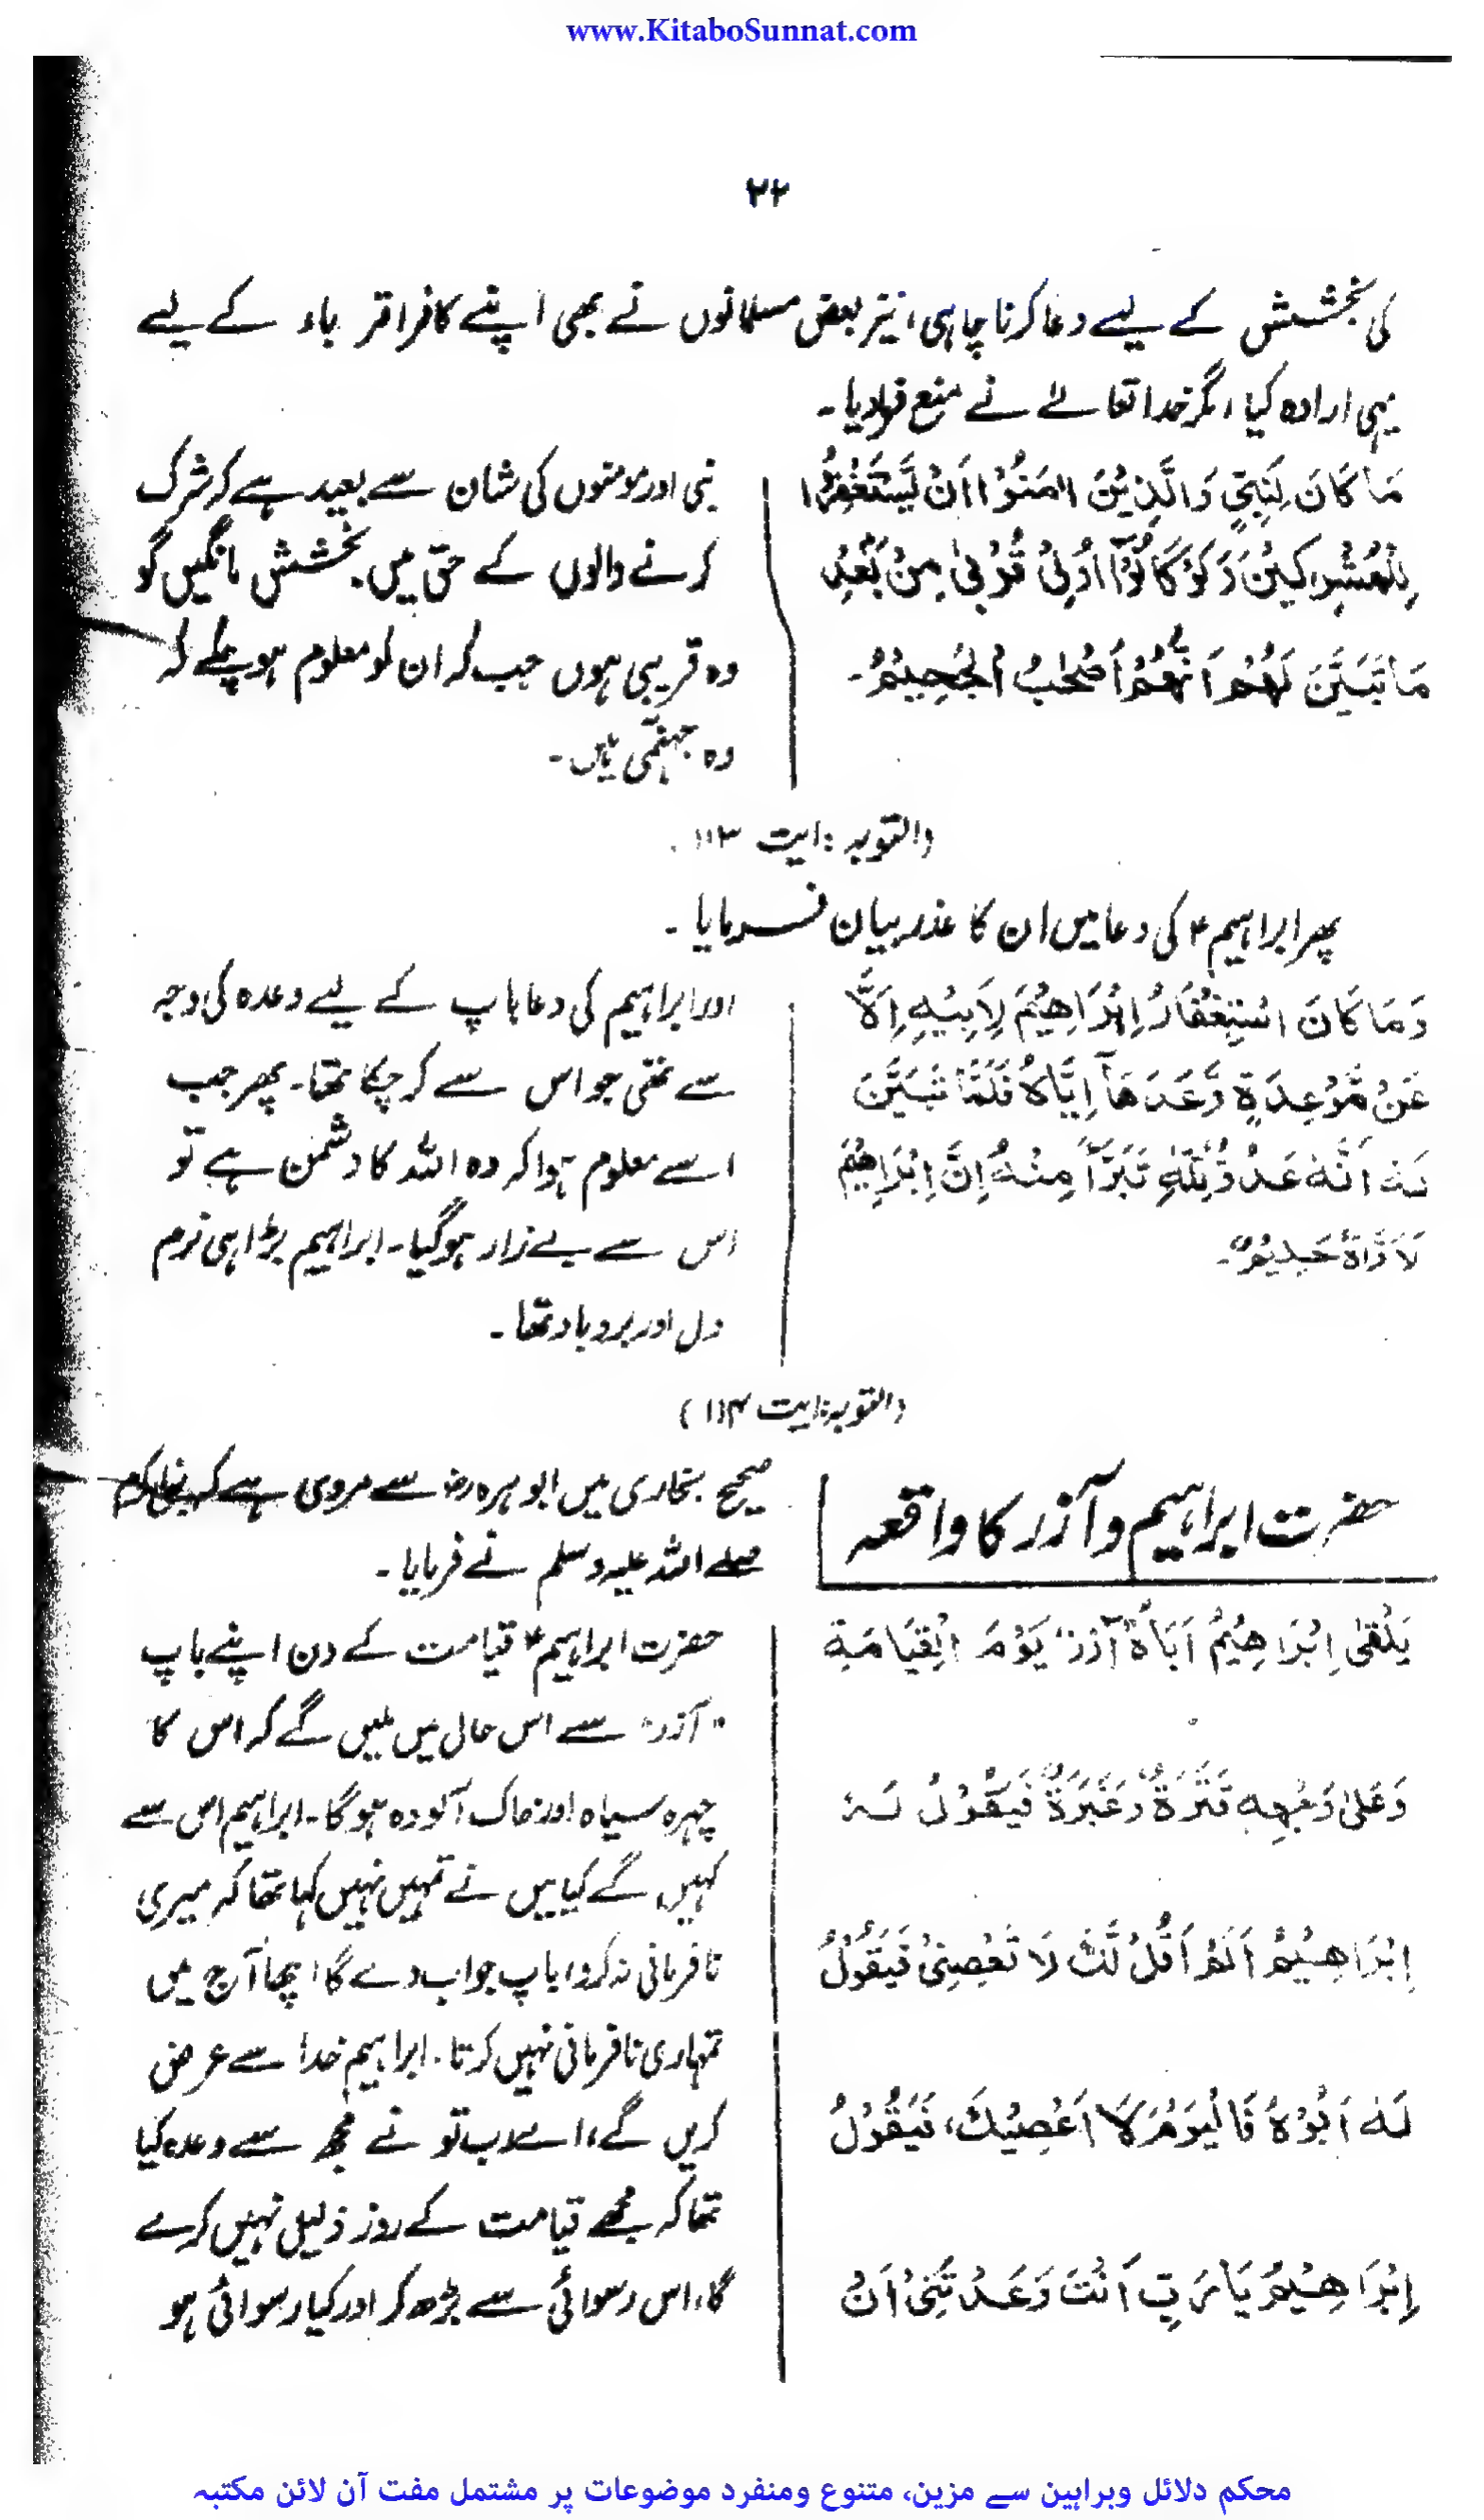 www.KitaboSunnat.com
۲۲
کی بخشش کے لیے دعا کرنا چاہی، نیز بعض مسلمانوں نے بھی اپنے کافر اقرباء کے لیے
یہی ارادہ کیا، مگر خدا تعالےٰ نے منع فرمادیا۔
مَا كَانَ لِنَبِيٍّ وَالَّذِيْنَ اٰمَنُوْا اَنْ يَّسْتَغْفِرُوْا
لِلْمُشْرِكِيْنَ وَلَوْ كَانُوْٓا اُولِىْ قُرْبٰى مِنْ بَعْدِ
مَا تَبَيَّنَ لَهُمْ اَنَّهُمْ اَصْحٰبُ الْجَحِيْمُ۔
نبی اور مومنوں کی شان سے بعید ہے کہ شرک
کرنے والوں کے حق میں بخشش مانگیں گو
وہ قریبی ہوں جب کہ ان کو معلوم ہو چکے کہ
وہ جہنمی ہیں۔
(التوبہ: آیت ۱۱۳)
پھر ابراہیم ؑ کی دعا میں ان کا عذر بیان فرمایا۔
وَمَا كَانَ اسْتِغْفَارُ اِبْرَاهِيْمَ لِاَبِيْهِ اِلَّا
عَنْ مَّوْعِدَةٍ وَّعَدَهَآ اِيَّاهُ فَلَمَّا تَبَيَّنَ
لَهٗ اَنَّهٗ عَدُوٌّ لِّلّٰهِ تَبَرَّاَ مِنْهُ اِنَّ اِبْرَاهِيْمَ
لَاَوَّاهٌ حَلِيْمٌ۔
اور ابراہیم کی دعا باپ کے لیے وعدہ کی وجہ
سے تھی جو اس سے کر چکا تھا۔ پھر جب
اسے معلوم ہوا کہ وہ اللہ کا دشمن ہے تو
اس سے بے زار ہو گیا۔ ابراہیم بڑا ہی نرم
دل اور بردبار تھا۔
(التوبہ: آیت ۱۱۴)
حضرت ابراہیم و آزر کا واقعہ
صحیح بخاری میں ابو ہریرہ رضؓ سے مروی ہے کہ نبی اکرم
صلے اللہ علیہ وسلم نے فرمایا۔
يَلْقٰى اِبْرَاهِيْمُ اَبَاهُ "آزر" يَوْمَ الْقِيَامَةِ
وَعَلٰى وَجْهِهٖ قَتَرَةٌ وَغَبَرَةٌ فَيَقُوْلُ لَهٗ
اِبْرَاهِيْمُ اَلَمْ اَقُلْ لَّكَ لَا تَعْصِنِىْ فَيَقُوْلُ
لَهٗ اَبُوْهُ فَالْيَوْمَ لَا اَعْصِيْكَ، فَيَقُوْلُ
اِبْرَاهِيْمُ يَا رَبِّ اَنْتَ وَعَدْتَّنِىْ اَنْ
حضرت ابراہیم ؑ قیامت کے دن اپنے باپ
"آزر" سے اس حال میں ملیں گے کہ اس کا
چہرہ سیاہ اور خاک آلودہ ہو گا۔ ابراہیم اس سے
کہیں گے کیا میں نے تمہیں نہیں کہا تھا کہ میری
نافرمانی نہ کرو، باپ جواب دے گا، اچھا آج میں
تمہاری نافرمانی نہیں کرتا۔ ابراہیم خدا سے عرض
کریں گے، اے رب تو نے مجھ سے وعدہ کیا
تھا کہ مجھے قیامت کے روز ذلیل نہیں کرے
گا، اس رسوائی سے بڑھ کر اور کیا رسوائی ہو
محکم دلائل وبراہین سے مزین، متنوع ومنفرد موضوعات پر مشتمل مفت آن لائن مکتبہ